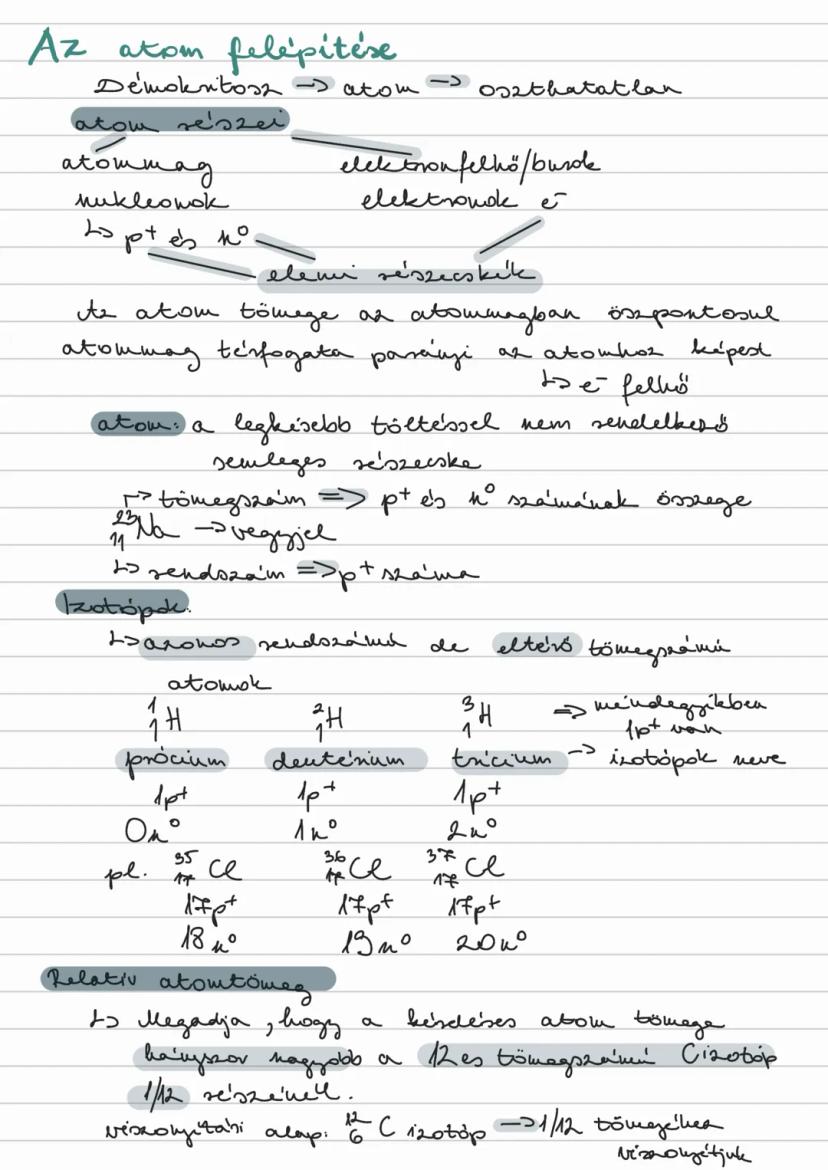 Az atom felépítése
Démokritosz -> atom -> oszthatatlan
atom részei
atommag elektronfelhő/burok
nukleonok elektronok e⁻
↳ p⁺ és n⁰
elemi részecskék
Az atom tömege az atommagban öszpontosul
atommag térfogata parányi az atomhoz képest
↳ e⁻ felhő
atom: a legkisebb töltéssel nem rendelkező
semleges részecske
↱ tömegszám => p⁺ és n⁰ számának összege
²³₁₁Na -> vegyjel
↳ rendszám => p⁺ száma
Izotópok:
↳ azonos rendszámú de eltérő tömegszámú
atomok
¹₁H ²₁H ³₁H => mindegyikben
1p⁺ van
prócium deutérium trícium -> izotópok neve
1p⁺ 1p⁺ 1p⁺
0n⁰ 1n⁰ 2n⁰
pl. ³⁵₁₇Cl ³⁶₁₇Cl ³⁷₁₇Cl
17p⁺ 17p⁺ 17p⁺
18n⁰ 19n⁰ 20n⁰
Relatív atomtömeg
↳ Megadja, hogy a kérdéses atom tömege
hányszor nagyobb a 12es tömegszámú C izotóp
1/12 részénél.
viszonyítási alap: ¹²₆C izotóp -> 1/12 tömegéhez
viszonyítjuk